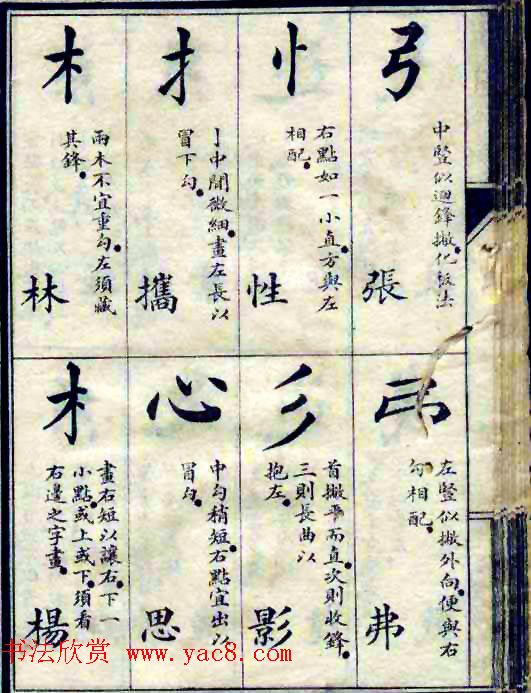 弓
中豎似迴鋒撇化板法
張
忄
右點如一小直方與左
相配
性
扌
亅中間微細畫左長以
冒下勾
攜
木
兩木不宜重勾左須藏
其鋒
林
左豎似撇外向便與右
勾相配
弗
彡
首撇平而直次則收鋒
三則長曲以
抱左
影
心
中勾稍短右點宜出以
冒勾
思
木
畫右短以讓右下一
小點或上或下須看
右邊之字畫
楊
书法欣赏 www.yac8.com